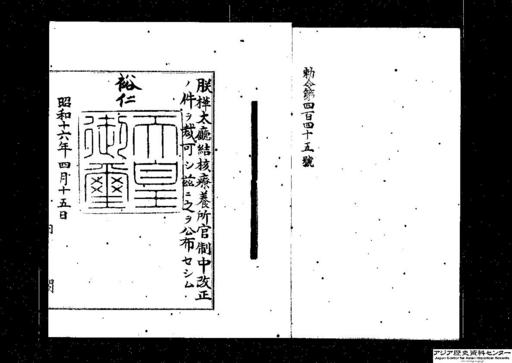 勅令第四百四十五號
朕樺太廳結核療養所官制中改正
ノ件ヲ裁可シ茲ニ之ヲ公布セシム
裕仁
天皇御璽
昭和十六年四月十五日
内閣
アジア歴史資料センター
Japan Center for Asian Historical Records